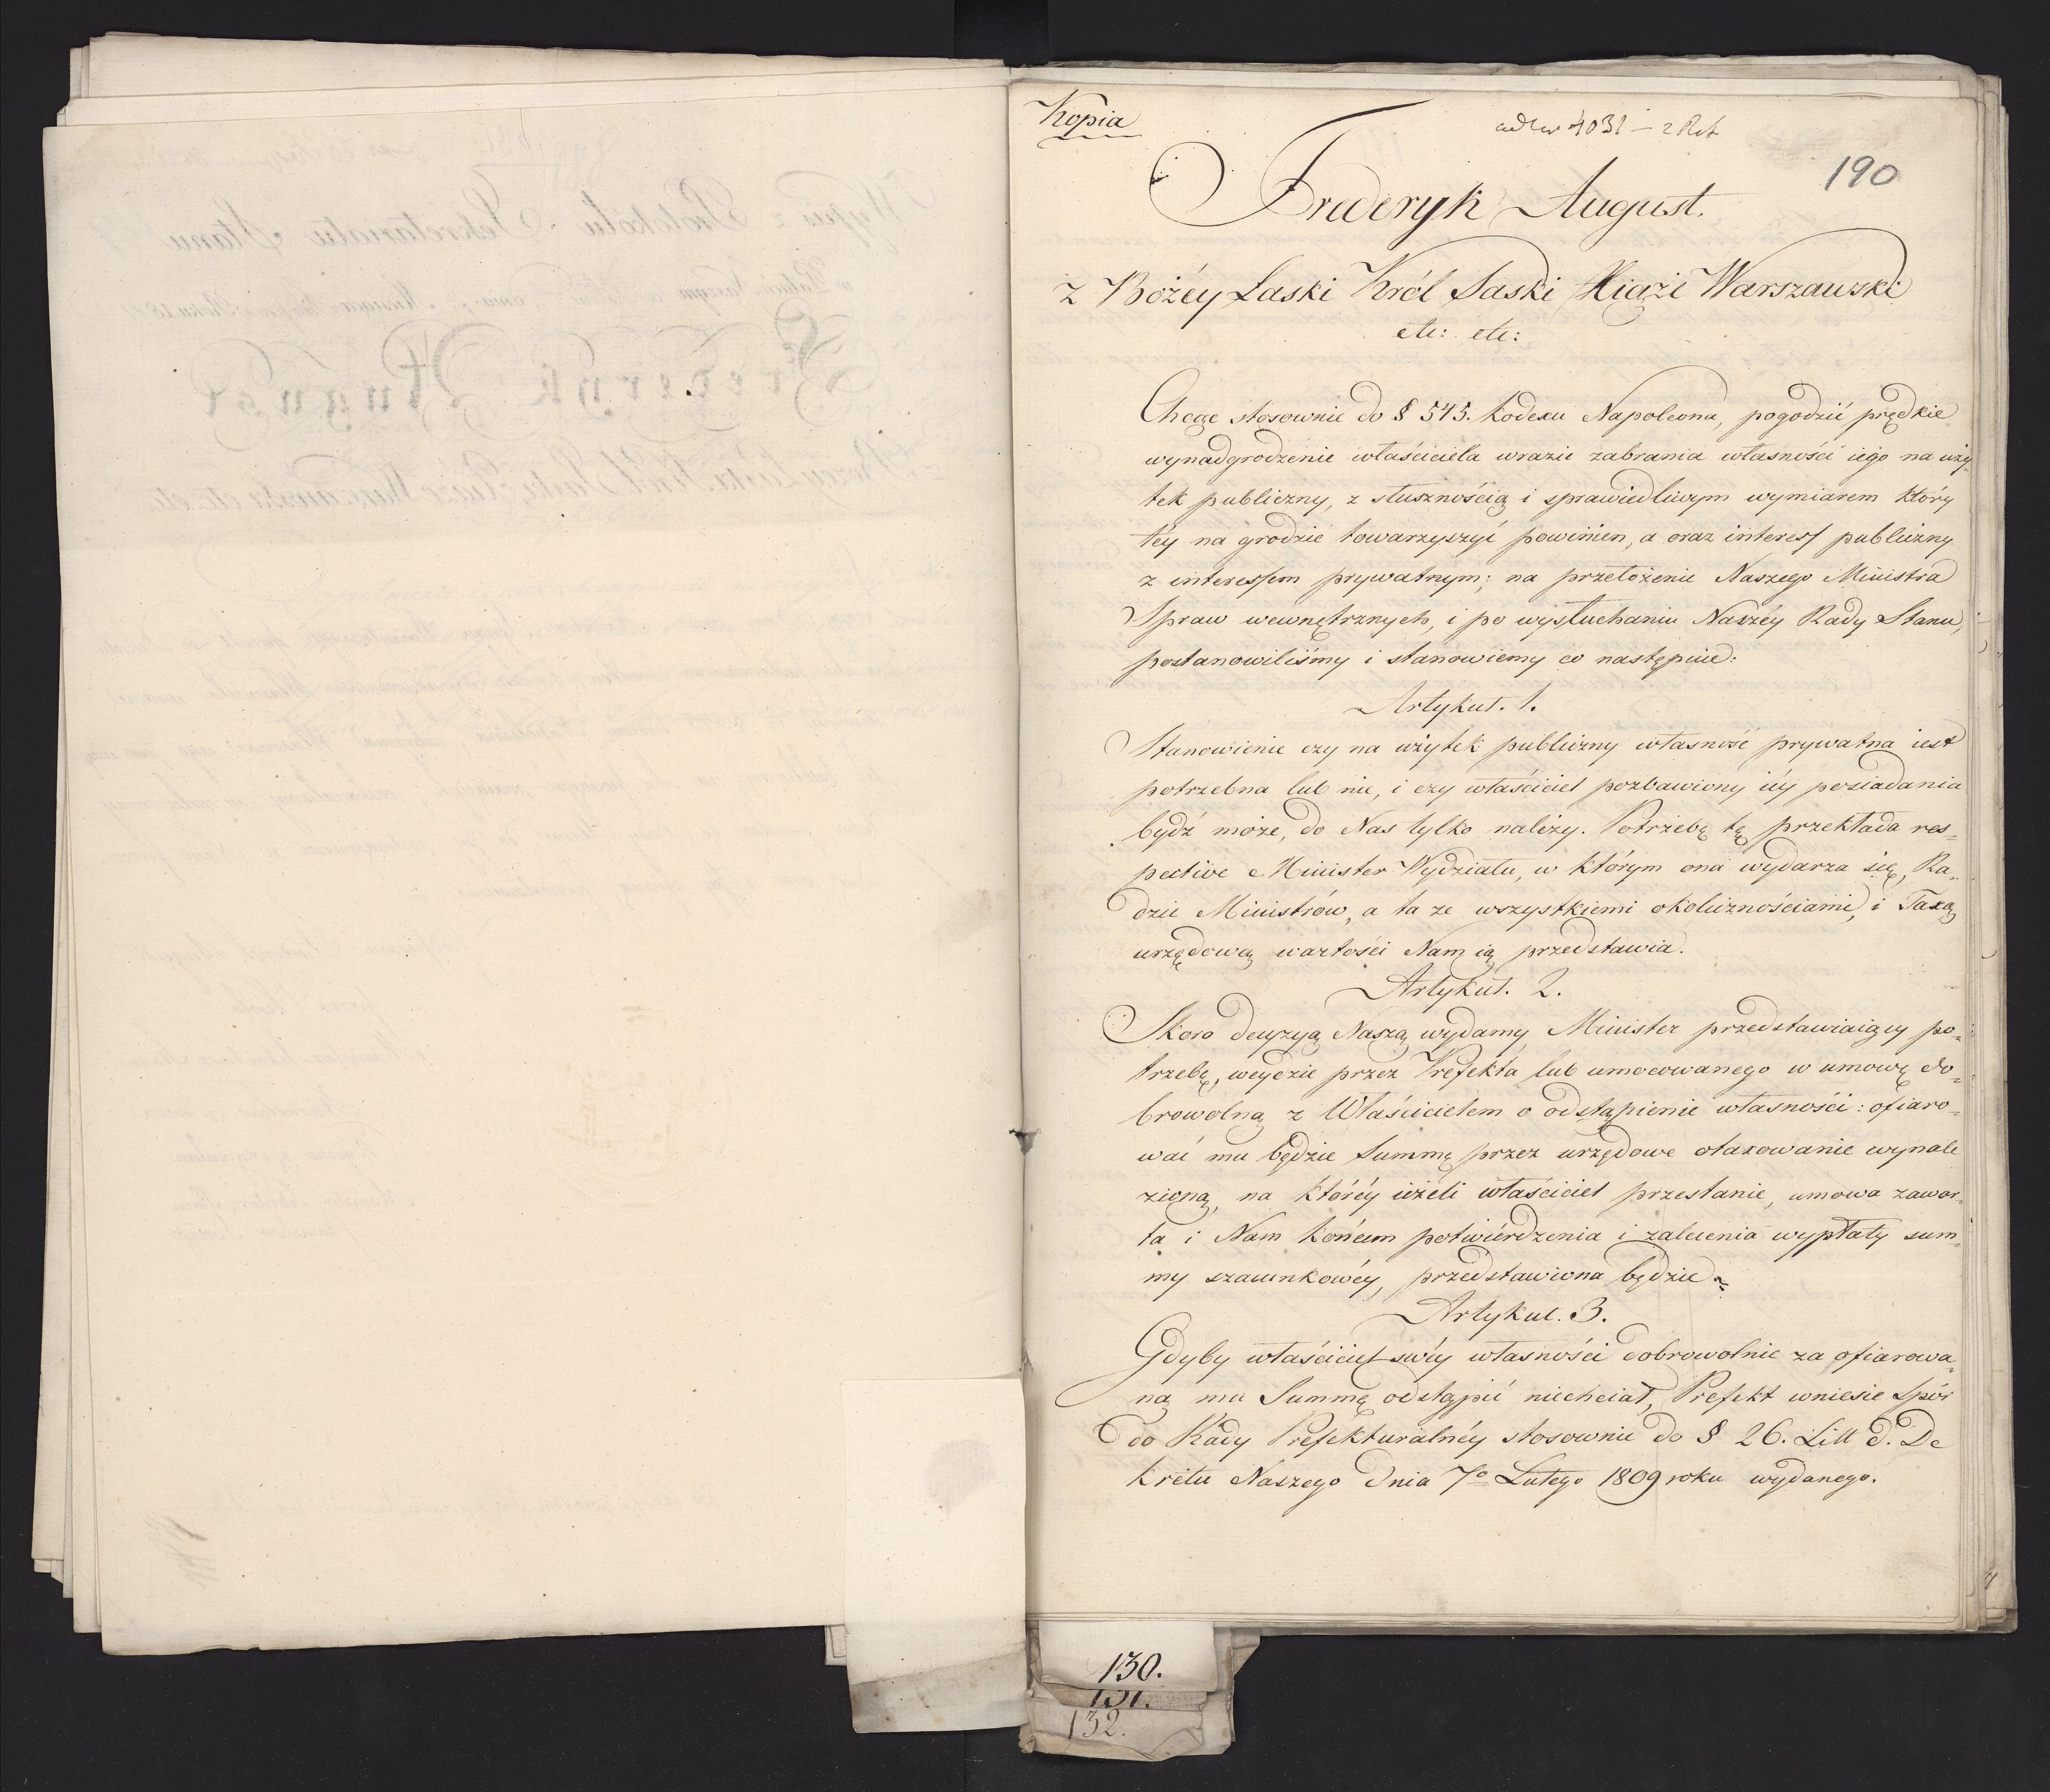 Kopia
190
Frederyk August.
z Bożéy Łaski Król Saski Xiąże Warszawski
etc: etc:
Chcąc stosownie do § 545. Kodexu Napoleona, pogodzić prędkie
wynadgrodzenie właściciela wrazie zabrania własności iego na uży-
tek publiczny, z słusznością i sprawiedliwym wymiarem który
téy na grodzie towarzyszyć powinien, a oraz interess publiczny
z interessem prywatnym; na przełożenie Naszego Ministra
Spraw wewnętrznych, i po wysłuchaniu Naszéy Rady Stanu,
postanowiliśmy i stanowiemy co następuie:
Artykuł. 1.
Stanowienie czy na użytek publiczny własność prywatna iest
potrzebna lub nie, i czy właściciel pozbawiony iéy posiadania
bydź może, do Nas tylko należy. Potrzebę tę przekłada res-
pective Minister Wydziału, w którym ona wydarza się, Ra-
dzie Ministrów, a ta ze wszystkiemi okolicznościami, i Taxą
urzędową wartości Nam ią przedstawia.
Artykuł. 2.
Skoro decyzyą Naszą wydamy, Minister przedstawiaiący po-
trzebę, weydzie przez Prefekta lub umocowanego w umowę do-
browolną z Właścicielem o odstąpienie własności: ofiaro-
wać mu będzie Summę przez urzędowe otaxowanie wynale
zioną, na któréy ieżeli właściciel przestanie, umowa zawar-
ta i Nam końcem potwiérdzenia i zalecenia wypłaty sum-
my szacunkowéy, przedstawiona będzie
Artykuł. 3.
Gdyby właściciel swéy własności dobrowolnie za ofiarowa-
ną mu Summę odstąpić niechciał, Prefekt wniesie spór
do Rady Prefekturalnéy stosownie do § 26. Litt d. De
kretu Naszego dnia 7º Lutego 1809 roku wydanego.
130.
131.
132.